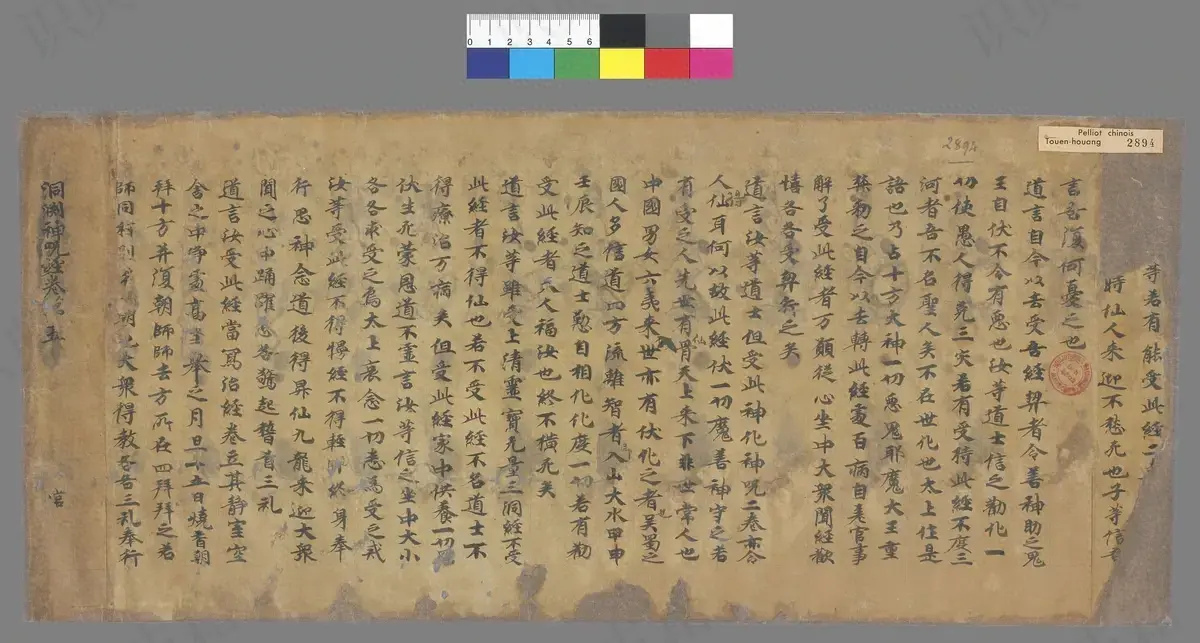 0 1 2 3 4 5 6
Pelliot chinois
Touen-houang 2894
2894
等若有能受此經二
時仙人來迎不愁死也子等信
言吾復何憂之也
道言自今以去受吾經契者令善神助之鬼
王自伏不令有惡也汝等道士信之勸化一
切使愚人得免三灾若有受持此經不度三
河者吾不名聖人矣不在世化也太上住是
語也乃占十方大神一切惡鬼耶魔大王重
勑之自今以去轉此經處百病自差官事
解了受此經者万願從心坐中大衆聞經歡
憘各各受奉行之矣
道言汝等道士但受此神化神呪二卷亦令
得
人仙耳何以故此經伏一切魔善神守之若
有受之人先世有骨天上來下非世常人也
仙
中國男女六夷來世亦有伏化之者吴蜀之
國人多信道四方流離智者入山大水甲申
壬辰知之道士懃自相化化度一切若有勸
受此經者六人福汝也終不橫死矣
道言汝等雖受上清靈寶无量三洞經不受
此經者不得仙也若不受此經不名道士不
得療治万病矣但受此經家中供養一切
伏生死蒙恩道不虛言汝等信之坐中大小
各各求受之爲太上哀念一切悉爲受之戒
汝等受此經不得慢經不得輕師終身奉
行思神念道後得昇仙九龍來迎大衆
聞之心中踊躍悉各驚起稽首三礼
道言汝受此經當寫治經卷立其静室空
舍之中净處高坐舉之月旦十五日燒香朝
拜十方并復朝師師去方所在四拜拜之若
師同村大衆得教各各三礼奉行
洞淵神呪經卷第五
宫